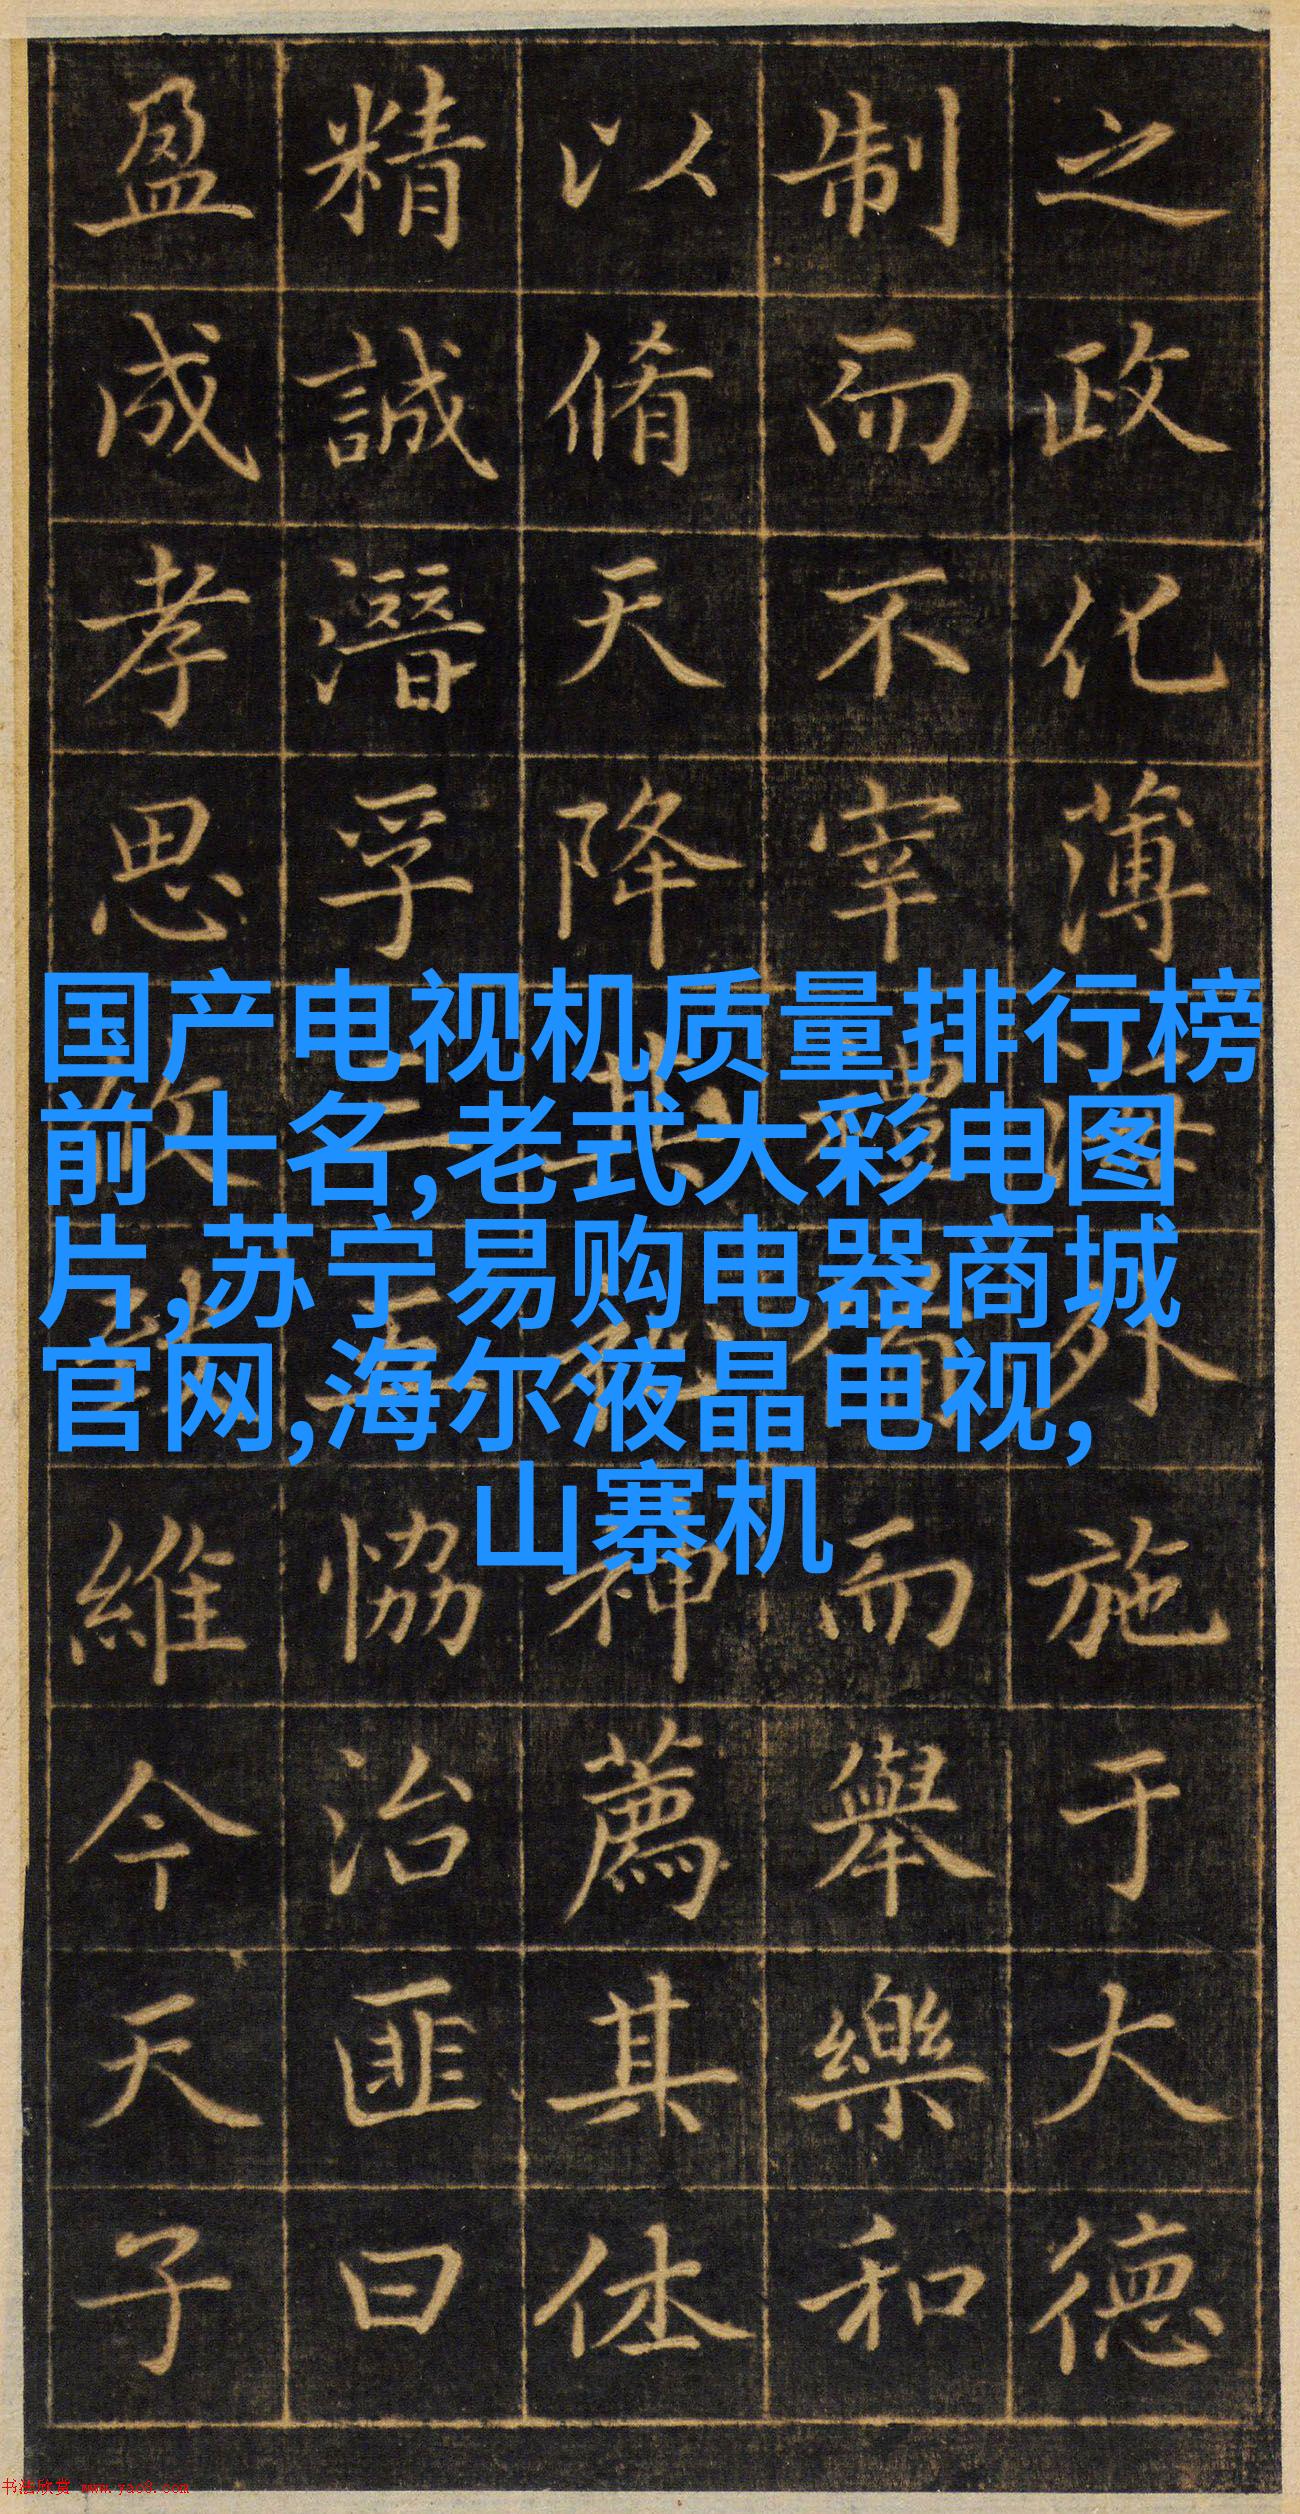 之政化薄海外施于大德
制而不宰備而舉樂和
以脩天降其神薦其休
精誠潛孚恊治匪曰
盈成孝思維今天子
国产电视机质量排行榜
前十名,老式大彩电图
片,苏宁易购电器商城
官网,海尔液晶电视,
山寨机
书法欣赏 www.yac8.com